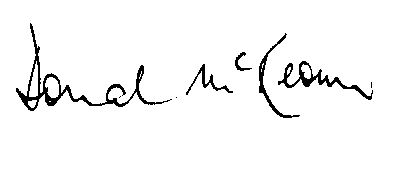 Donal McKeown